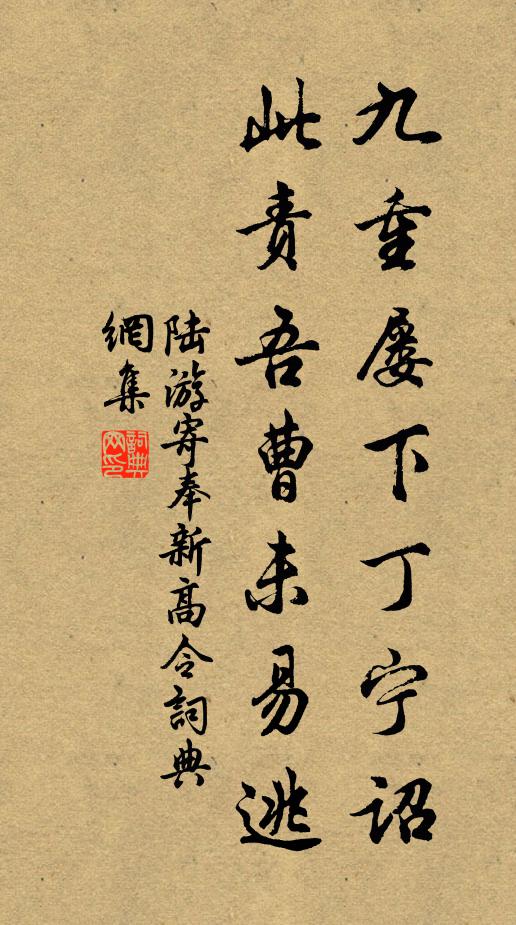 九重屡下丁宁詔
此责吾曹未易逃
陆游寄奉新高令詞典
網集
詞典網印